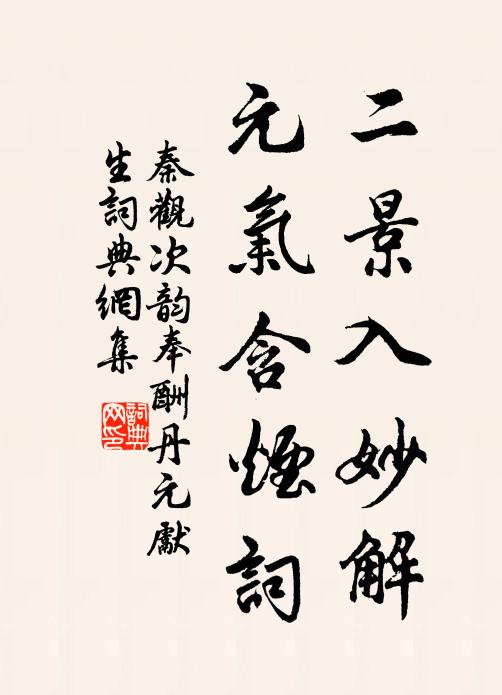 二景入妙解
元氣含煙詞
秦觀次韵奉酬丹元獻
生詞典網集
詞典
网印